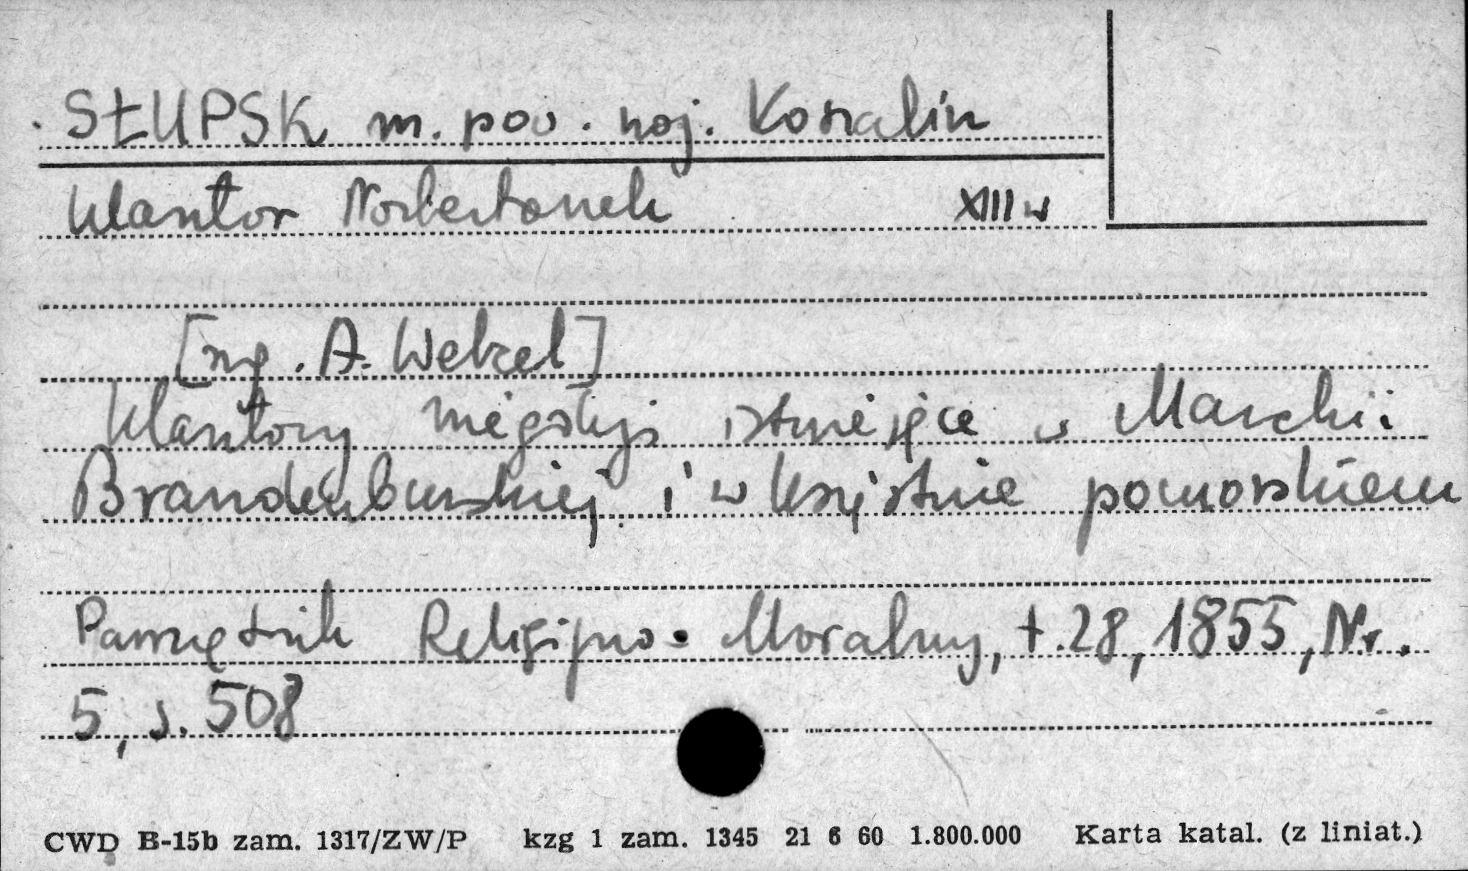 SŁUPSK m. pow. woj. Koszalin
Klasztor Norbertanek XIII w
[wg. A. Welzel]
Klasztory niegdyś istniejące w Marchii
Brandenburskiej i w księstwie pomorskiem
Pamiętnik Religijno-Moralny, t. 28, 1855, Nr.
5, s. 508
CWD B-15b zam. 1317/ZW/P kzg 1 zam. 1345 21 6 60 1.800.000 Karta katal. (z liniat.)